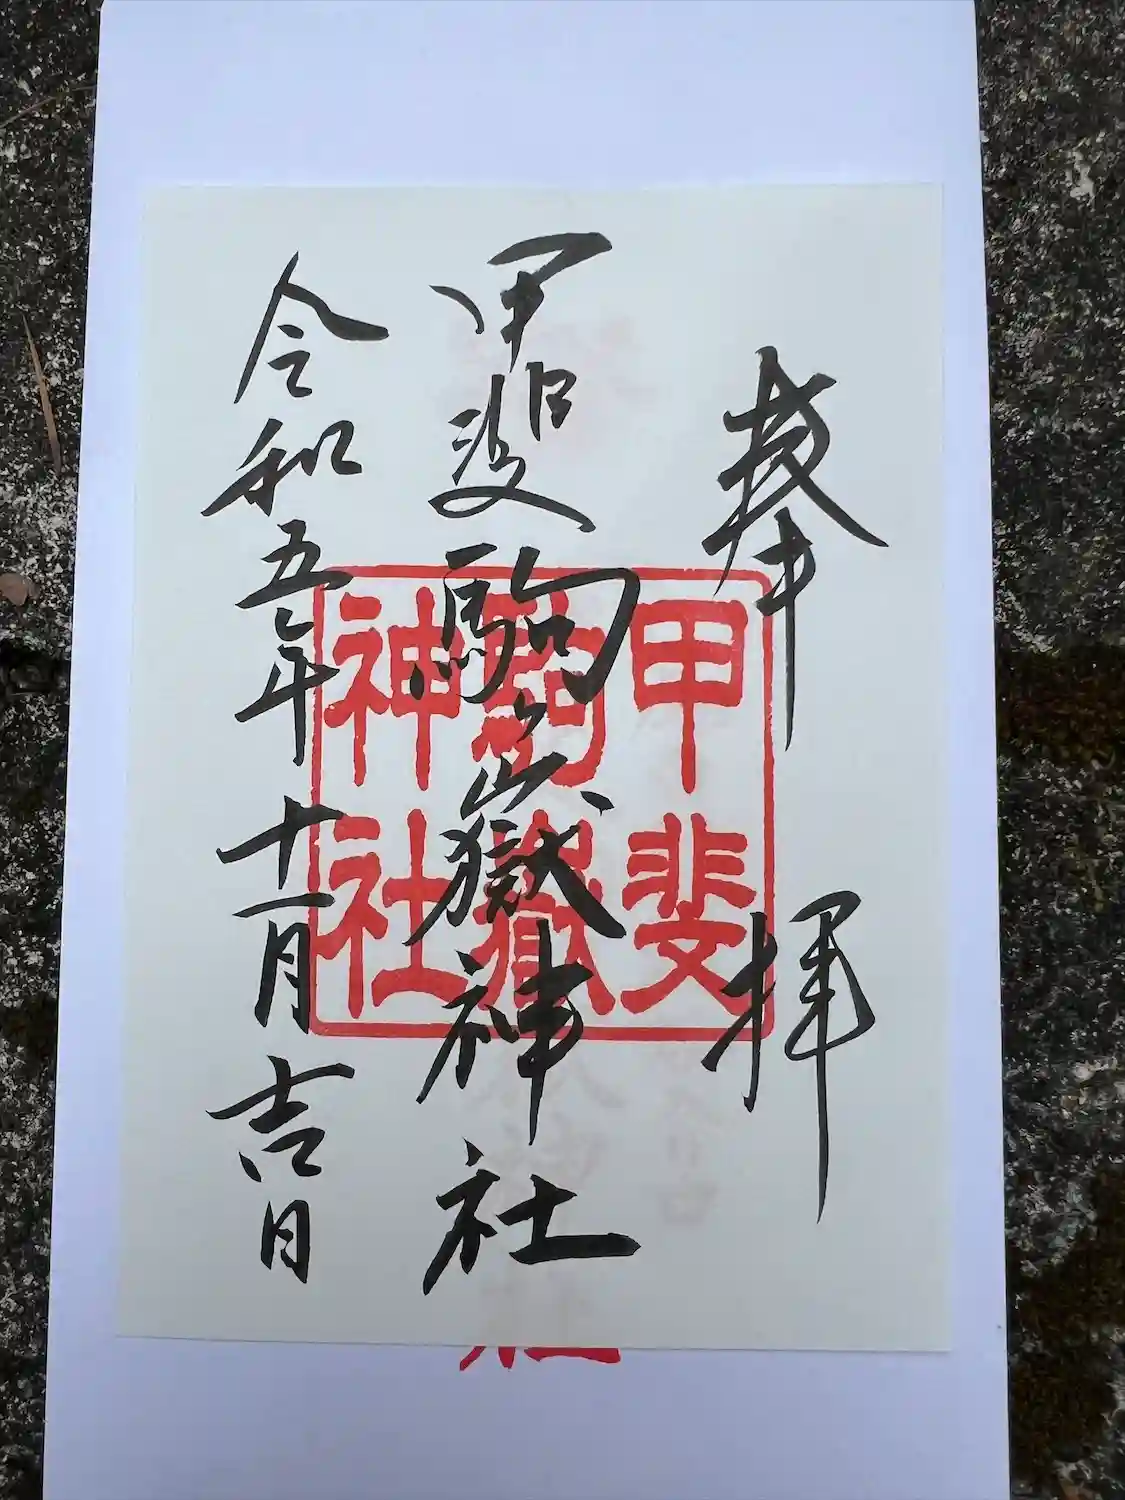 奉拝
甲斐駒嶽神社
令和五年十一月吉日
甲斐
駒嶽
神社